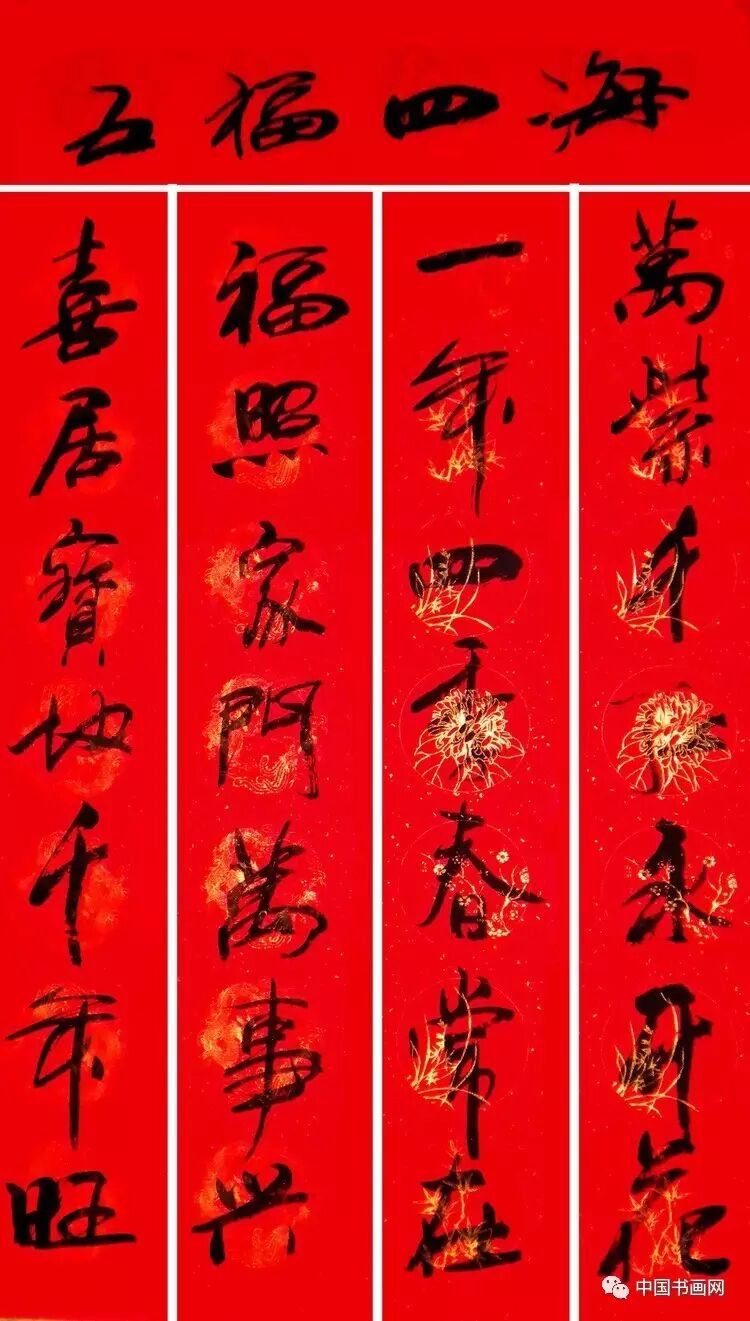 五福四海
喜居寶地千年旺
福照家門萬事兴
一年四季春常在
萬紫千永開花
中国书画网